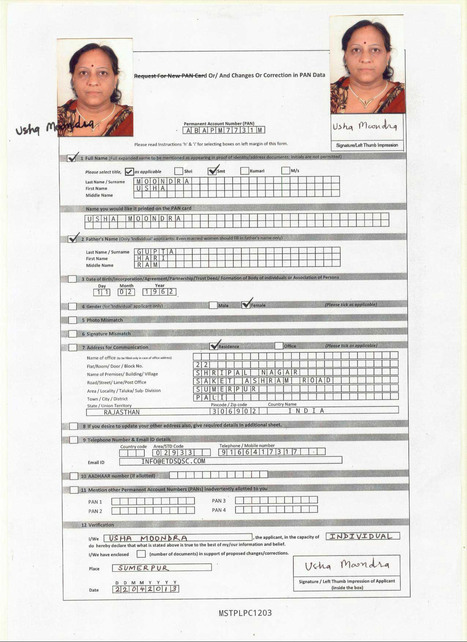 Request For New PAN Card Or/ And Changes Or Correction in PAN Data
Usha Moondra
Permanent Account Number (PAN)
ABAPM7731M
Usha Moondra
Please read Instructions 'h' & 'i' for selecting boxes on left margin of this form.
Signature/Left Thumb Impression
1 Full Name (Full expanded name to be mentioned as appearing in proof of identity/address documents: initials are not permitted)
Please select title, as applicable Shri Smt Kumari M/s
Last Name / Surname MOONDRA
First Name USHA
Middle Name
Name you would like it printed on the PAN card
USHA MOONDRA
2 Father's Name
Last Name / Surname GUPTA
First Name HARI
Middle Name RAM
3 Date of Birth/Incorporation/Agreement/Partnership/Trust Deed/ Formation of Body of individuals or Association of Persons
Day Month Year
11 02 1962
4 Gender (for 'Individual' applicants only) Male Female (Please tick as applicable)
5 Photo Mismatch
6 Signature Mismatch
7 Address for Communication Residence Office (Please tick as applicable)
Name of office
Flat/Room/ Door / Block No. 22
Name of Premises/ Building/ Village SHRIPAL NAGAR
Road/Street/ Lane/Post Office SAKET ASHRAM ROAD
Area / Locality / Taluka/ Sub- Division SUMERPUR
Town / City / District PALI
State / Union Territory Pincode / Zip code Country Name
RAJASTHAN 306902 INDIA
8 If you desire to update your other address also, give required details in additional sheet.
9 Telephone Number & Email ID details
Country code Area/STD Code Telephone / Mobile number
02933 9166417317
Email ID INFO@ETDSQSC.COM
10 AADHAAR number (if allotted)
11 Mention other Permanent Account Numbers (PANs) inadvertently allotted to you
PAN 1 PAN 3
PAN 2 PAN 4
12 Verification
I/We USHA MOONDRA , the applicant, in the capacity of INDIVIDUAL
do hereby declare that what is stated above is true to the best of my/our information and belief.
I/We have enclosed (number of documents) in support of proposed changes/corrections.
Place SUMERPUR
Usha Moondra
D D M M Y Y Y Y
Date 22042013
Signature / Left Thumb Impression of Applicant
(inside the box)
MSTPLPC1203